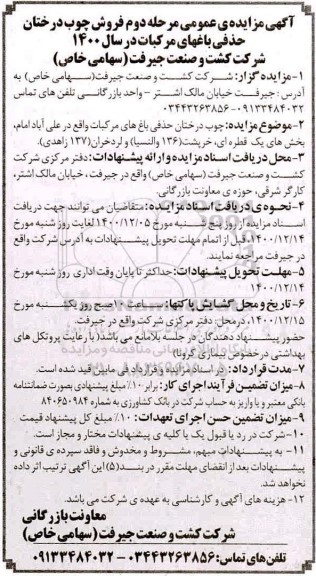 آگهی مزایده‌ی عمومی مرحله دوم فروش چوب درختان
حذفی باغهای مرکبات در سال ۱۴۰۰
شرکت کشت و صنعت جیرفت (سهامی خاص)
۱-مزایده گزار: شرکت کشت و صنعت جیرفت(سهامی خاص) به
آدرس : جیرفت خیابان مالک اشتر - واحد بازرگانی تلفن های تماس
۰۹۱۳۳۴۸۴۰۳۲-۰۳۴۴۳۲۶۳۸۵۶
۲-موضوع مزایده: چوب درختان حذفی باغ های مرکبات واقع در علی آباد امام،
بخش های یک قطره ای، خرپشت(۱۳۶ والنسیا) و لردخران(۱۳۷ زاهدی).
۳-محل دریافت اسناد مزایده و ارائه پیشنهادات: دفتر مرکزی شرکت
کشت و صنعت جیرفت (سهامی خاص) واقع در جیرفت، خیابان مالک اشتر،
کارگر شرقی، حوزه ی معاونت بازرگانی.
۴-نحوه‌ی دریافت اسناد مزایده: متقاضیان می توانند جهت دریافت
اسناد مزایده از روز پنج شنبه مورخ ۱۴۰۰/۱۲/۰۵ لغایت روز شنبه مورخ
۱۴۰۰/۱۲/۱۴، قبل از اتمام مهلت تحویل پیشنهادات به آدرس شرکت واقع
در جیرفت مراجعه نمایند.
۵-مهلت تحویل پیشنهادات: حداکثر تا پایان وقت اداری روز شنبه مورخ
۱۴۰۰/۱۲/۱۴
۶- تاریخ و محل گشایش پاکتها: ساعت ۱۰ صبح روز یکشنبه مورخ
۱۴۰۰/۱۲/۱۵، در محل: دفتر مرکزی شرکت واقع در جیرفت.
حضور پیشنهاد دهندگان در جلسه بلامانع می باشد( با رعایت پروتکل های
بهداشتی در خصوص بیماری کرونا)
۷-مدت قرارداد: در اسناد مزایده و قرارداد فی مابین قید شده است.
۸-میزان تضمین فرآیند اجرای کار: برابر ۱۰٪ مبلغ پیشنهادی بصورت ضمانتنامه
بانکی معتبر و یا واریز به حساب شرکت در بانک کشاورزی به شماره ۸۴۰۶۵۰۹۸۴
۹-میزان تضمین حسن اجرای تعهدات: ۱۰٪ مبلغ کل پیشنهاد قیمت
۱۰-شرکت در رد یا قبول یک یا کلیه ی پیشنهادات مختار و مجاز است.
۱۱- به پیشنهادات مبهم، مشروط و مخدوش و فاقد سپرده ی قانونی و
پیشنهادات بعد از انقضای مهلت مقرر در بند(۵) این آگهی ترتیب اثر داده
نخواهد شد.
۱۲- هزینه های آگهی و کارشناسی به عهده ی شرکت می باشد.
معاونت بازرگانی
شرکت کشت و صنعت جیرفت (سهامی خاص)
تلفن های تماس: ۰۳۴۴۳۲۶۳۸۵۶ - ۰۹۱۳۳۴۸۴۰۳۲